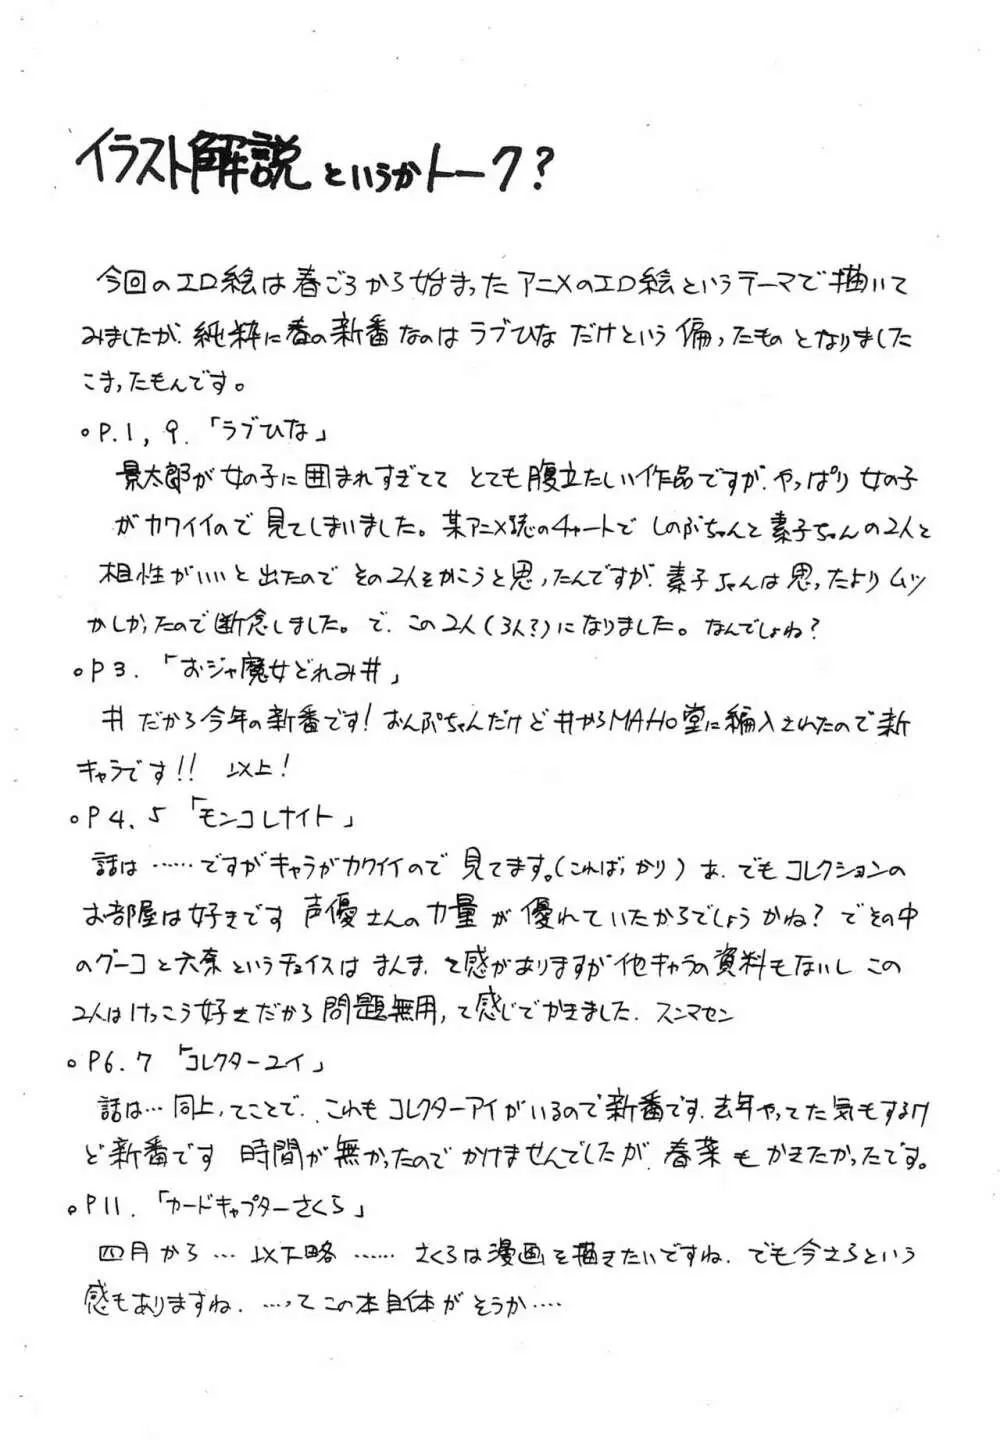 イラスト解説というかトーク?
今回のエロ絵は春ごろから始まったアニメのエロ絵というテーマで描いて
みましたが、純粋に春の新番なのはラブひなだけという偏ったものとなりました
こまったもんです。
○P.1,9.「ラブひな」
景太郎が女の子に囲まれすぎててとても腹立たしい作品ですが、やっぱり女の子
がカワイイので見てしまいました。某アニメ誌のチャートでしのぶちゃんと素子ちゃんの2人と
相性がいいと出たのでその2人をかこうと思ったんですが、素子ちゃんは思ったよりムツ
かしかったので断念しました。で、この2人(3人?)になりました。なんでしょね?
○P3.「おジャ魔女どれみ#」
#だから今年の新番です!おんぷちゃんだけど#からMAHO堂に編入されたので新
キャラです!!以上!
○P4.5「モンコレナイト」
話は……ですがキャラがカワイイので見てます。(こればっかり)あ、でもコレクションの
お部屋は好きです声優さんの力量が優れていたからでしょうかね?でその中
のグーコと六奈というチョイスはまんまって感がありますが他キャラの資料もないしこの
2人はけっこう好きだから問題無用って感じでかきました.スンマセン
○P6.7「コレクターユイ」
話は…同上ってことで.これもコレクターアイがいるので新番です.去年やってた気もするけ
ど新番です時間が無かったのでかけませんでしたが、春菜もかきたかったです。
○P11.「カードキャプターさくら」
四月から…以下略……さくらは漫画を描きたいですね.でも今さらという
感もありますね.…ってこの本自体がそうか….